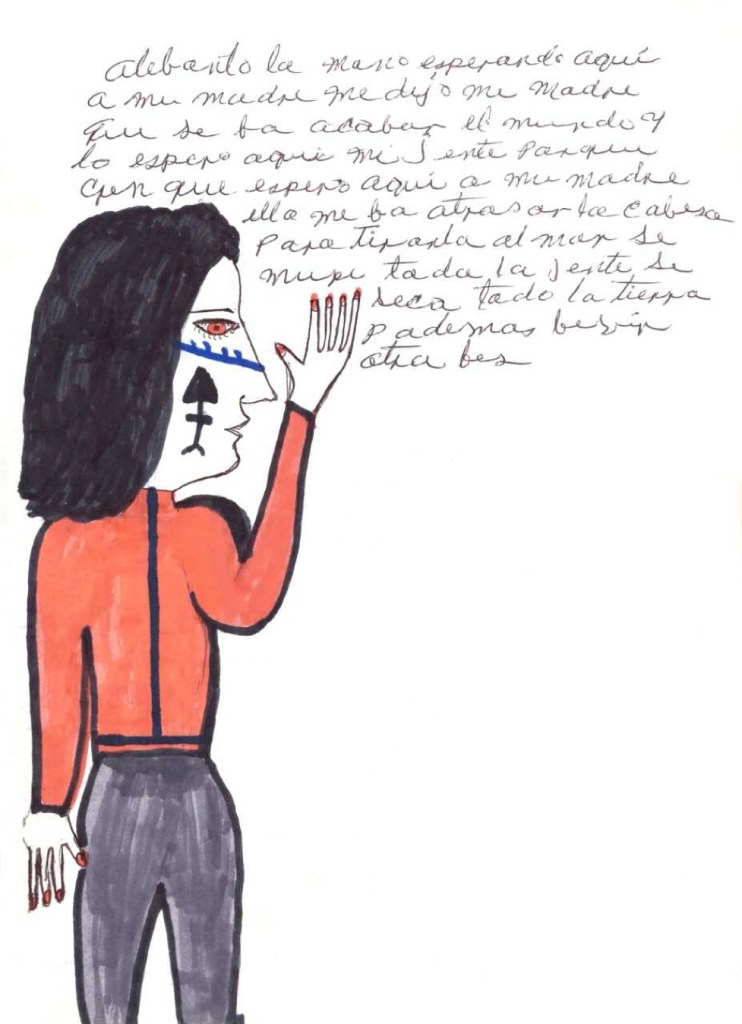 alebanto la mano esperando aqui
a mi madre me dijo mi madre
que se ba acabar el mundo y
lo espero aqui mi jente parque
cren que espero aqui a mi madre
ella me ba atrasar la cabesa
para tirarla al mar se
mure toda la jente se
seca todo la tierra
pademas
otra bes